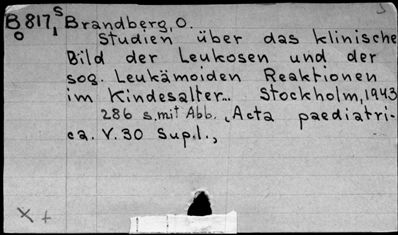 B817,S Brandberg, O.
O 1
Studien über das klinische
Bild der Leukosen und der
sog. Leukämoiden Reaktionen
im Kindesalter... Stockholm, 1943
286 s. mit Abb. (Acta paediatri-
ca. V. 30 Supl.,